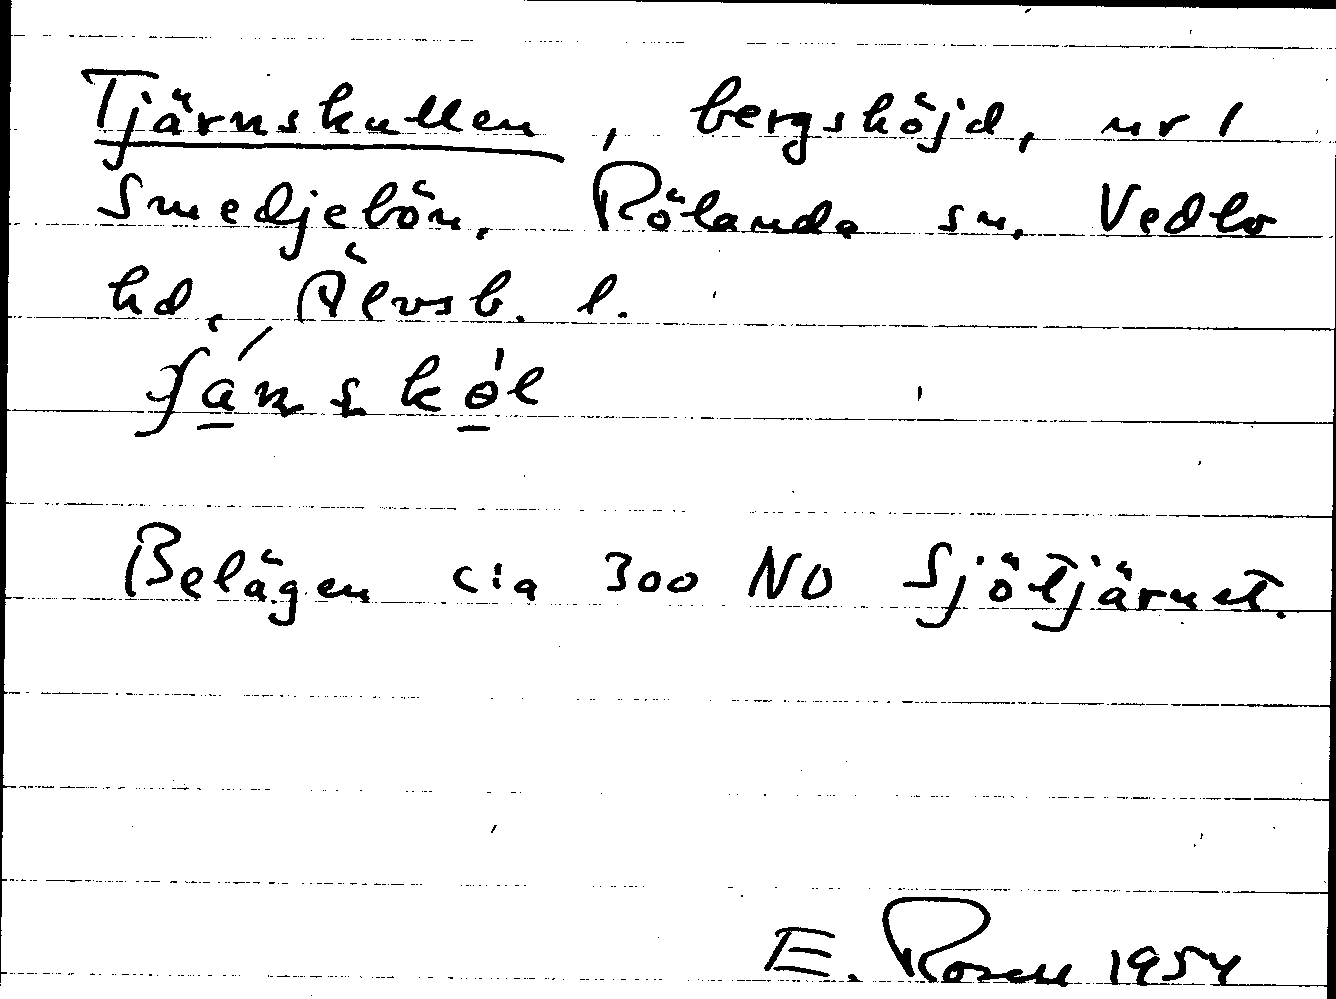 Tjärnskullen, bergshöjd, nr 1
Smedjebön, Rölanda sn, Vedbo
hd, Älvsb. l.
Belägen c:a 300 NO Sjötjärnet.
E. Rosell 1954